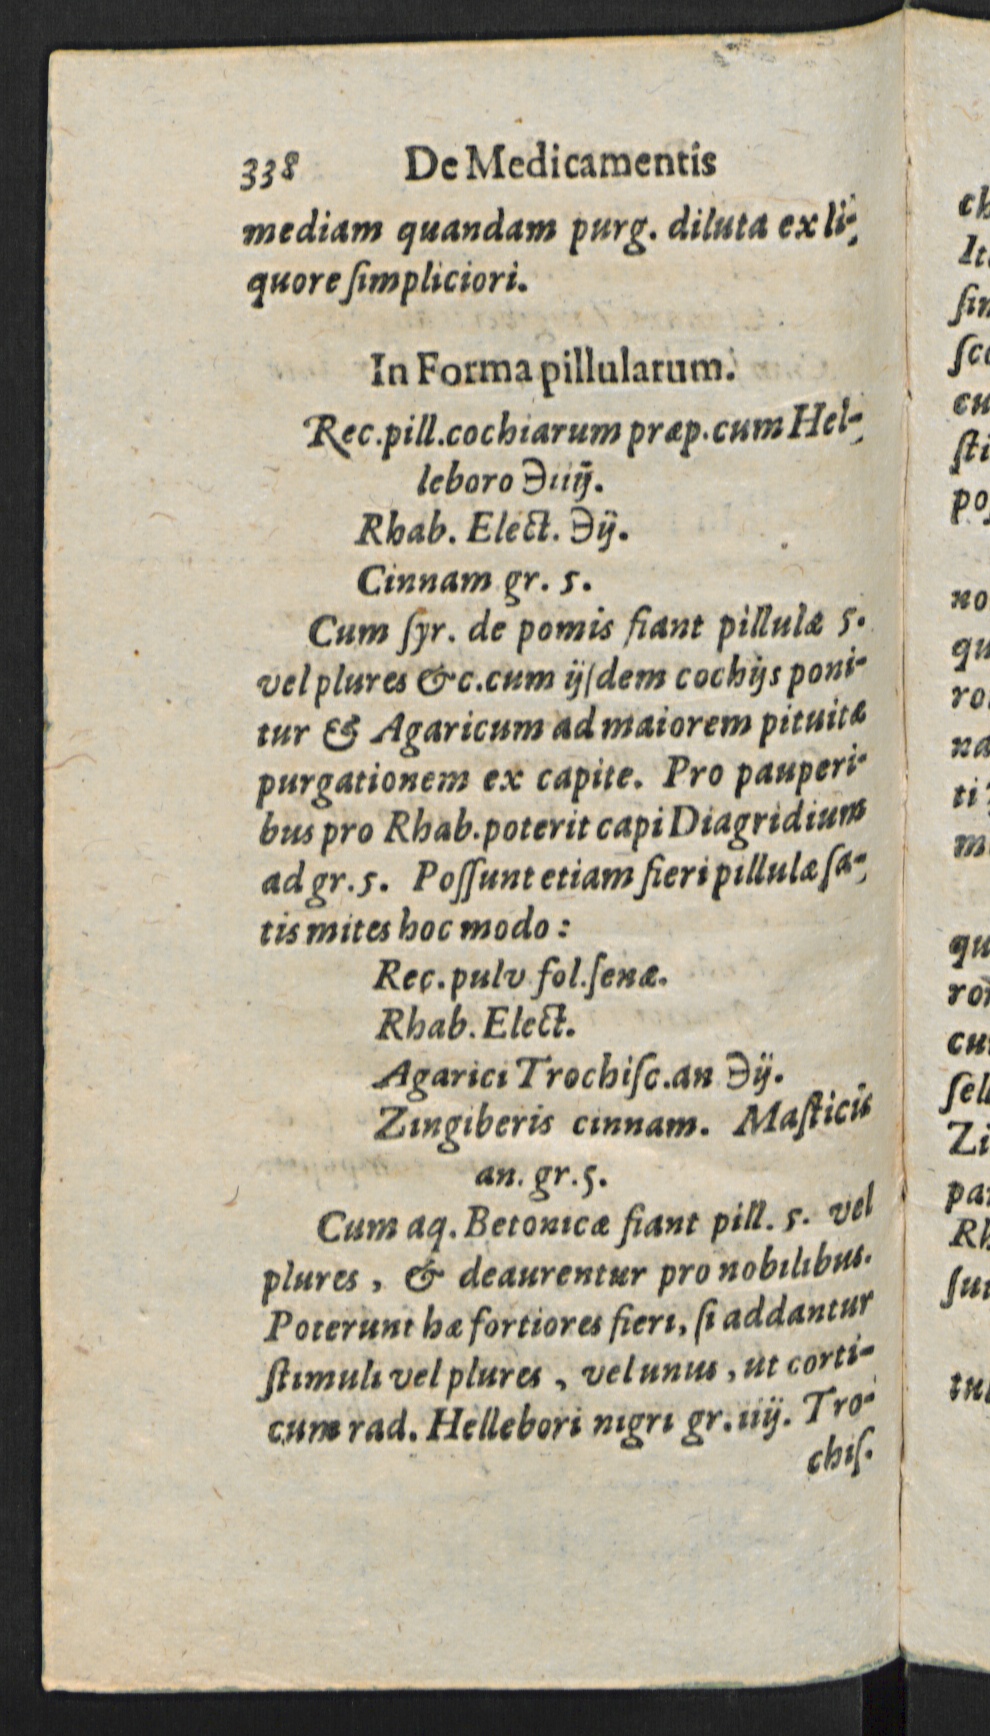 338 De Medicamentis
mediam quandam purg. diluta ex li-
quore ſimpliciori.
In Forma pillularum.
Rec. pill. cochiarum præp. cum Hel-
leboro ℈iiij.
Rhab. Elect. ℈ij.
Cinnam gr. 5.
Cum ſyr. de pomis fiant pillulæ 5.
vel plures &c. cum ijſdem cochijs poni-
tur & Agaricum ad maiorem pituitæ
purgationem ex capite. Pro pauperi-
bus pro Rhab. poterit capi Diagridium
ad gr. 5. Poſſunt etiam fieri pillulæ ſa-
tis mites hoc modo:
Rec. pulv fol. ſenæ.
Rhab. Elect.
Agarici Trochiſc. an ℈ij.
Zingiberis cinnam. Maſticis
an. gr. 5.
Cum aq. Betonicæ fiant pill. 5. vel
plures, & deaurentur pro nobilibus.
Poterunt hæ fortiores fieri, ſi addantur
ſtimuli vel plures, vel unus, ut corti-
cum rad. Hellebori nigri gr. iiij. Tro-
chiſ.